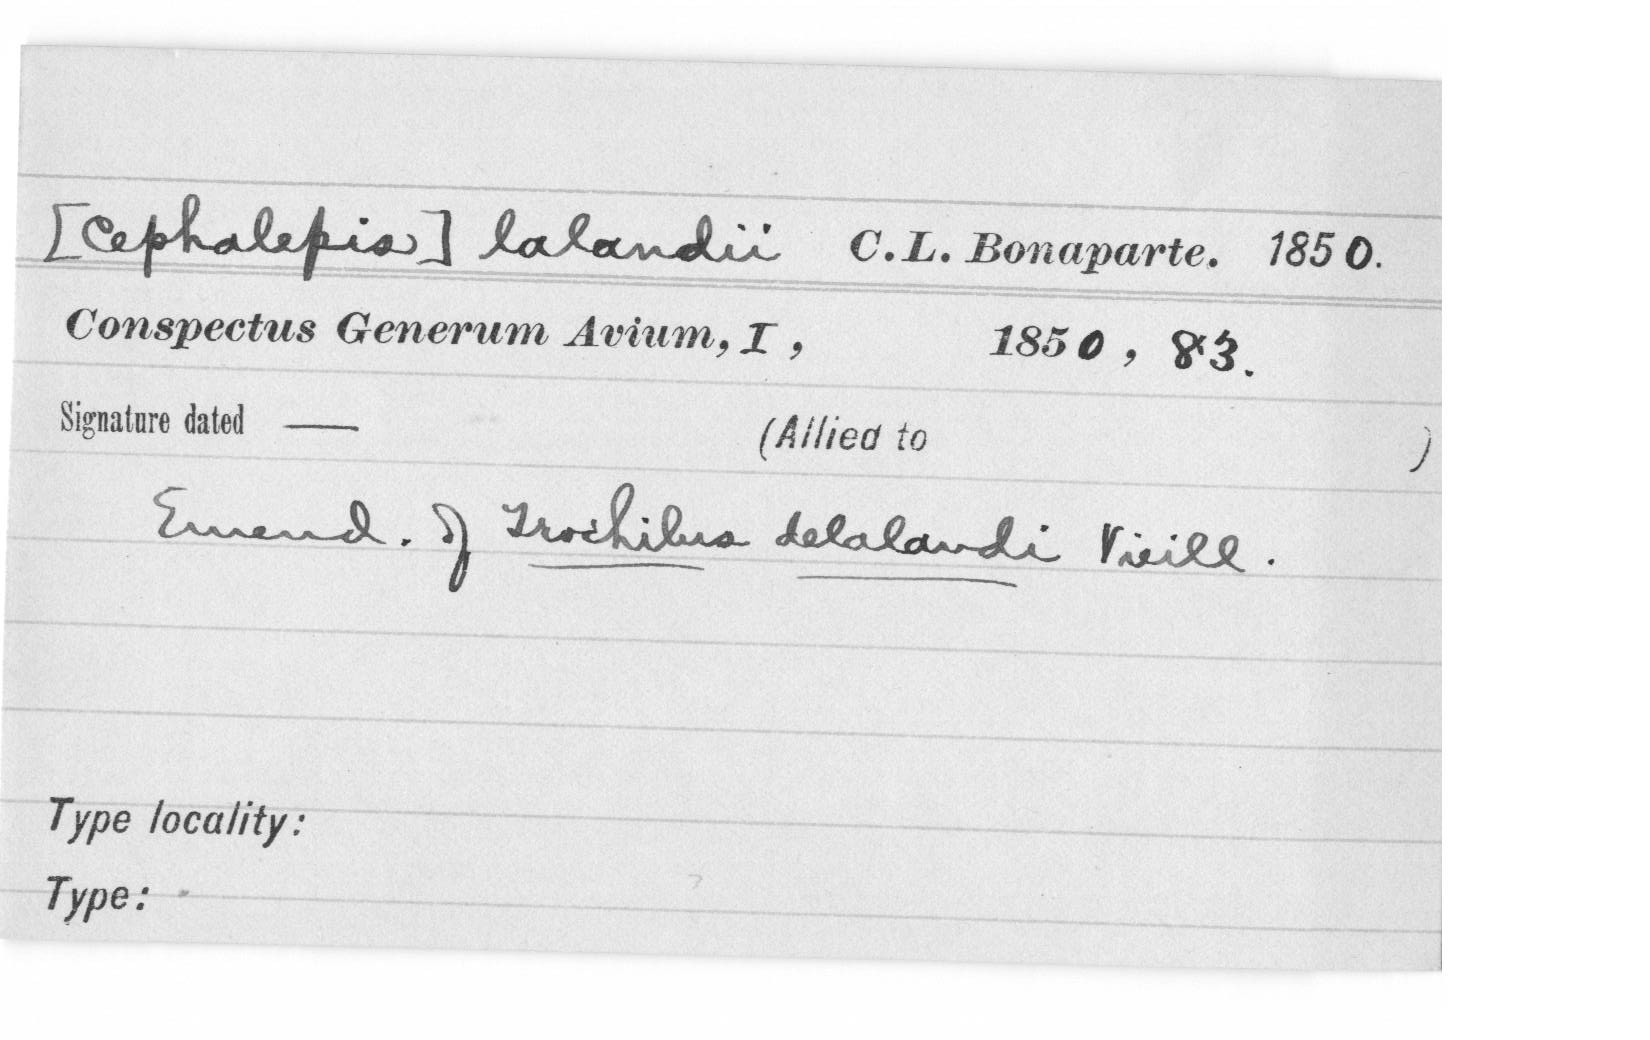 [Cephalepis] lalandii C.L. Bonaparte. 1850.
Conspectus Generum Avium, I, 1850, 83.
Signature dated — (Allied to )
Emend. of Trochilus delalandi Vieill.
Type locality:
Type: